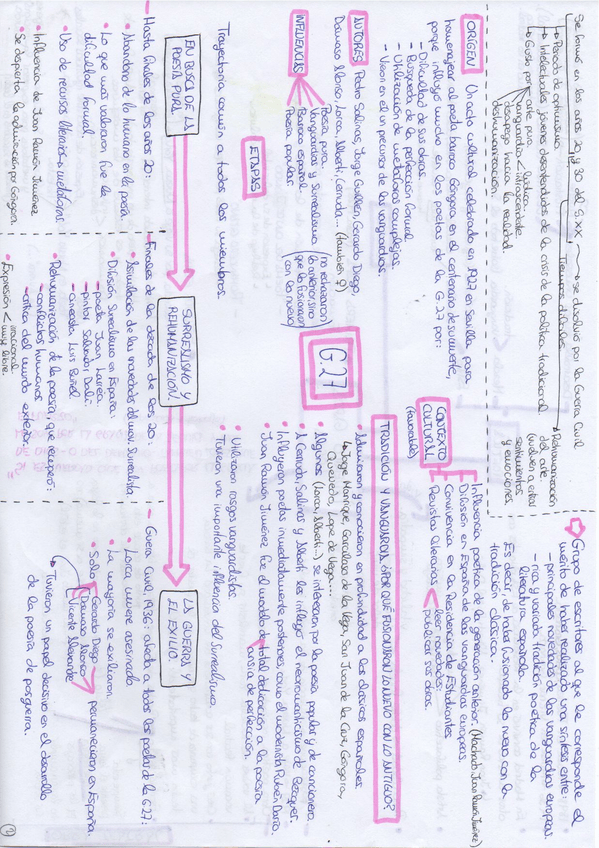 Se forma en los años 20 y 30 del S.XX → se disolvió por la Guerra Civil
Tiempos difíciles
→ Periodo de optimismo
→ Intelectuales jóvenes desentendidos de la crisis de la política tradicional.
→ Gusto por: arte puro
vanguardias < lúdica intrascendente
despego hacia la realidad
deshumanización.
→ Rehumanización del arte.
(vuelven a entrar sentimientos y emociones.
→ Grupo de escritores al que le corresponde el mérito de haber realizado una síntesis entre:
- principales novedades de las vanguardias europeas.
- rica y variada tradición poética de la literatura española.
Es decir, de haber fusionado lo nuevo con la tradición clásica.
ORIGEN
Un acto cultural celebrado en 1927 en Sevilla para homenajear al poeta barroco Góngora en el centenario de su muerte, porque influyó mucho en los poetas de la G.27 por:
- Dificultad de sus obras.
- Búsqueda de la perfección formal
- Utilización de metáforas complejas.
- Vieron en él un precursor de las vanguardias.
AUTORES
Pedro Salinas, Jorge Guillén, Gerardo Diego, Dámaso Alonso, Lorca, Alberti, Cernuda... (también ♀)
INFLUENCIAS
Poesía pura
Vanguardias y Surrealismo
Barroco español
Poesía popular.
(no rechazaron lo anterior sino que lo fusionaron con lo nuevo)
G.27
CONTEXTO CULTURAL
(favorable)
Influencia poética de la generación anterior. (Machado, Juan Ramón Jiménez)
Difusión en España de las vanguardias europeas.
Convivencia en la Residencia de Estudiantes
Revistas literarias < leer novedades.
publicar sus obras.
TRADICIÓN Y VANGUARDIA ¿POR QUÉ FUSIONARON LO NUEVO CON LO ANTIGUO?
• Admiraron y conocieron en profundidad a los clásicos españoles
↳ Jorge Manrique, Garcilaso de la Vega, San Juan de la Cruz, Góngora, Quevedo, Lope de Vega...
• Algunos (Lorca, Alberti...) se interesan por la poesía popular y de cancionero
• A Cernuda, Salinas y Alberti les influyó el neorromanticismo de Bécquer.
• Influyeron poetas inmediatamente posteriores, como el modernista Rubén Darío.
• Juan Ramón Jiménez fue el modelo de total dedicación a la poesía
ansia de perfección.
• Utilizaron rasgos vanguardistas
• Tuvieron una importante influencia del Surrealismo.
ETAPAS
Trayectoria común a todos los miembros.
EN BUSCA DE LA POESÍA PURA.
- Hasta finales de los años 20:
• Abandono de lo humano en la poesía
• Lo que más valoraron fue la dificultad formal.
• Uso de recursos literarios → metáforas
• Influencia de Juan Ramón Jiménez
• Se despierta la admiración por Góngora.
SURREALISMO Y REHUMANIZACIÓN.
- Finales de la década de los 20:
• Asimilación de las novedades del mov. Surrealista
• Difusión Surrealismo en España:
- poeta Juan Larrea.
- pintor Salvador Dalí.
- cineasta Luis Buñuel
• Rehumanización de la poesía, que recuperó:
- conflictos humanos
- crítica del mundo exterior.
• Expresión < irracional.
muy libre.
LA GUERRA Y EL EXILIO.
- Guerra Civil, 1936: afecta a todos los poetas de la G27:
• Lorca muere asesinado
• La mayoría se exiliaron.
• Solo Gerardo Diego
Dámaso Alonso
Vicente Aleixandre
→ permanecieron en España.
→ Tuvieron un papel decisivo en el desarrollo de la poesía de posguerra.